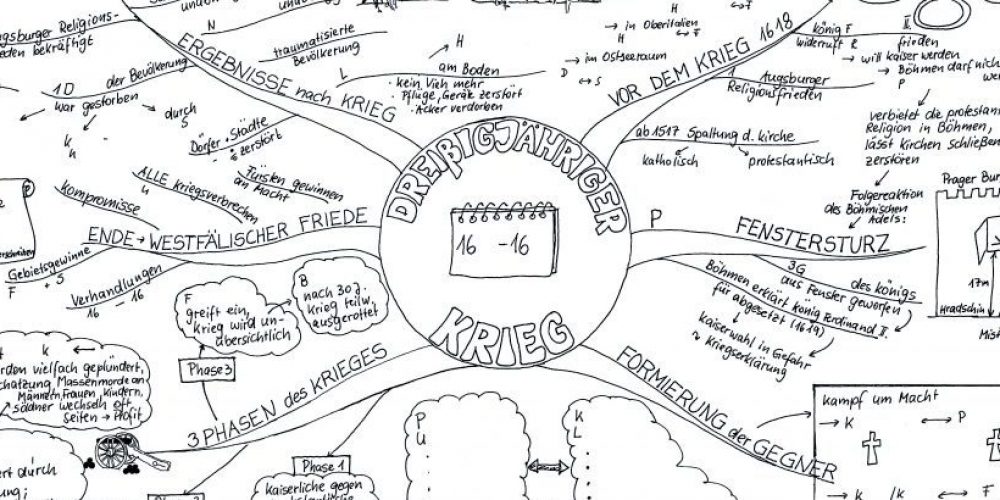 DREIßIGJÄHRIGER
KRIEG
16 -16
VOR DEM KRIEG 1618
1 Augsburger
Religionsfrieden
ab 1517 Spaltung d. Kirche
katholisch
protestantisch
→ in Oberitalien
H ↔ F
→ im Ostseeraum
D ↔ S
H
könig F II.
widerruft R frieden
→ will kaiser werden
→ Böhmen darf nich
P
verbietet die protestan
Religion in Böhmen,
lässt Kirchen schließen
zerstören
Folgereaktion
des Böhmischen
Adels:
P FENSTERSTURZ
3G des königs
aus Fenster geworfen
Böhmen erklärt könig Ferdinand II.
für abgesetzt (1619)
Kaiserwahl in Gefahr
Kriegserklärung
Prager Bur
17m
Hradschin
Mis
FORMIERUNG der GEGNER
kampf um Macht
→ K ← → P
← K /K ← → F
K
L
P
U
3 PHASEN des KRIEGES
Phase 1
kaiserliche gegen
Phase 3
F
greift ein,
krieg wird un-
übersichtlich
B
nach 30J.
krieg teilw.
ausgerottet
K ←
rden vielfach geplündert,
chatzung Massenmorde an
Männern, Frauen, Kindern,
söldner wechseln oft
Seiten → Profit
ert durch
ung;
ENDE → WESTFÄLISCHER FRIEDE
kompromisse
ALLE kriegsverbrechen
Fürsten gewinnen
an Macht
Gebietsgewinne
F + S
Verhandlungen
16 - 16
ERGEBNISSE nach KRIEG
N
traumatisierte
Bevölkerung
L am Boden
→ H
· kein Vieh mehr
· Pflüge, Geräte zerstört
· Äcker verdorben
Dörfer + Städte
zerstört
1D der Bevölkerung
war gestorben
durch
S
K
h
ugsburger Religions-
eden bekräftigt